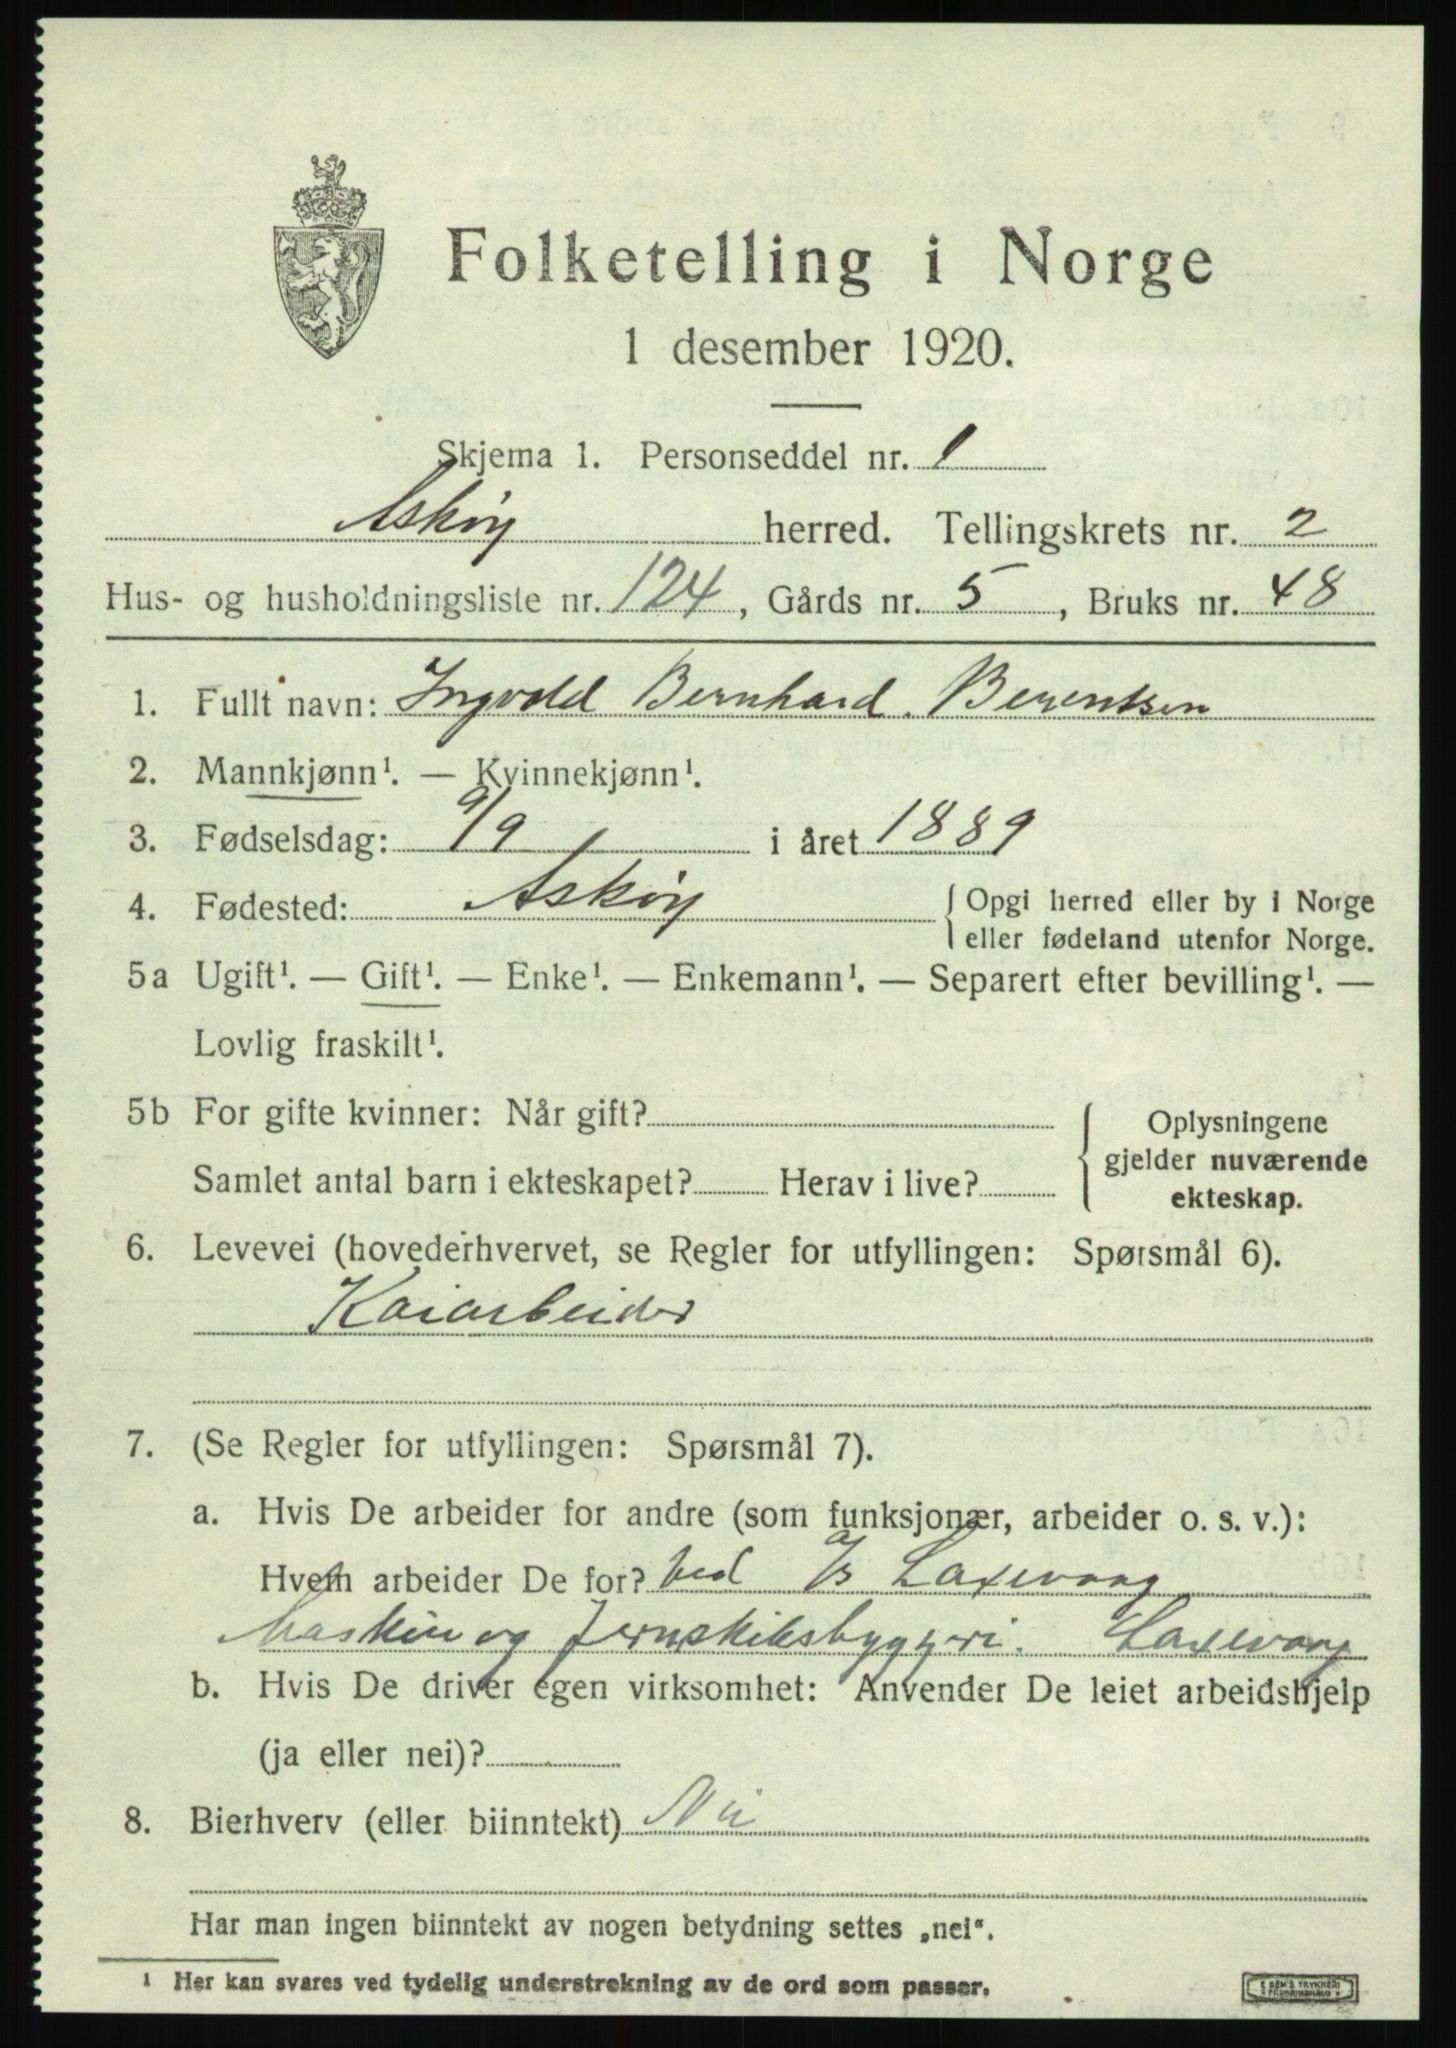 Folketelling i Norge
1 desember 1920.
Skjema 1. Personseddel nr. 1
Askøy herred. Tellingskrets nr. 2
Hus- og husholdningsliste nr. 124, Gårds nr. 5, Bruks nr. 48
1. Fullt navn: Ingvald Bernhard Berentsen
2. Mannkjønn¹. — Kvinnekjønn¹.
3. Fødselsdag: 9/9 i året 1889
4. Fødested: Askøy { Opgi herred eller by i Norge
eller fødeland utenfor Norge.
5a Ugift¹. — Gift¹. — Enke¹. — Enkemann¹. — Separert efter bevilling¹. —
Lovlig fraskilt¹.
5b For gifte kvinner: Når gift?
Samlet antal barn i ekteskapet? Herav i live?
{ Oplysningene
gjelder nuværende
ekteskap.
6. Levevei (hovederhvervet, se Regler for utfyllingen: Spørsmål 6).
Kaiarbeider
7. (Se Regler for utfyllingen: Spørsmål 7).
a. Hvis De arbeider for andre (som funksjonær, arbeider o. s. v.):
Hvem arbeider De for? Ved a/s Laxevaag
Maskin og Jernskibsbyggeri. Laxevaag
b. Hvis De driver egen virksomhet: Anvender De leiet arbeidshjelp
(ja eller nei)?
8. Bierhverv (eller biinntekt) Nei
Har man ingen biinntekt av nogen betydning settes „nei“.
¹ Her kan svares ved tydelig understrekning av de ord som passer.